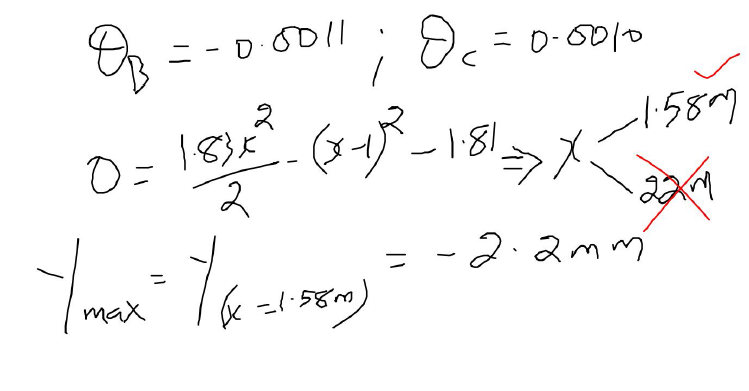 θ_B = -0.0011 ; θ_c = 0.0010
0 = 1.83x²/2 - (x-1)² - 1.81 ⇒ x 1.58m 22m
y_max = y_(x=1.58m) = -2.2mm